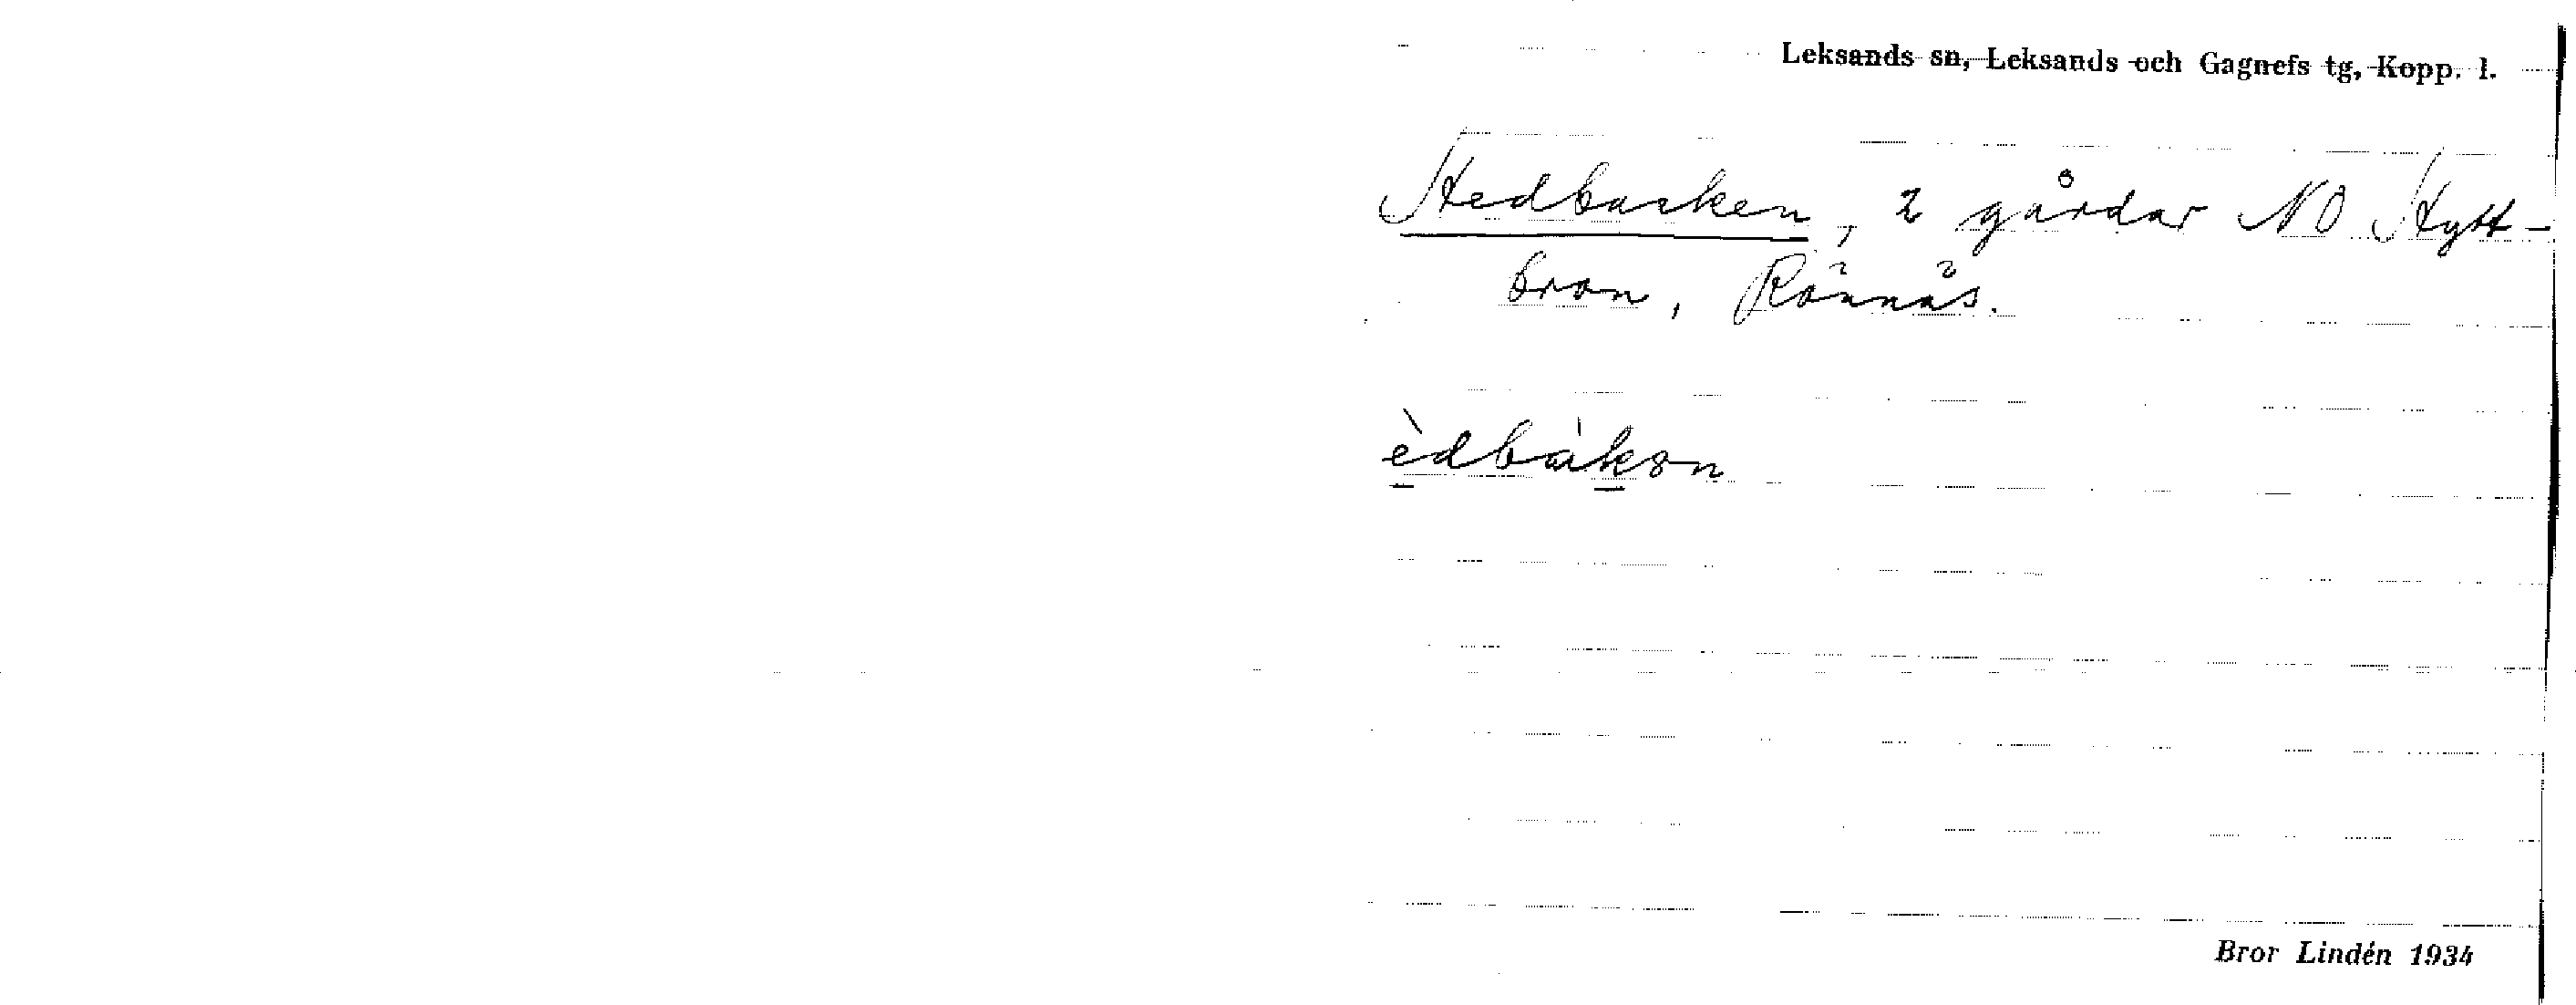 Leksands sn, Leksands och Gagnefs tg, Kopp. l.
Hedbacken, 2 gårdar NO Hytt-
bron, Rönnäs.
èdbàkon
Bror Lindén 1934